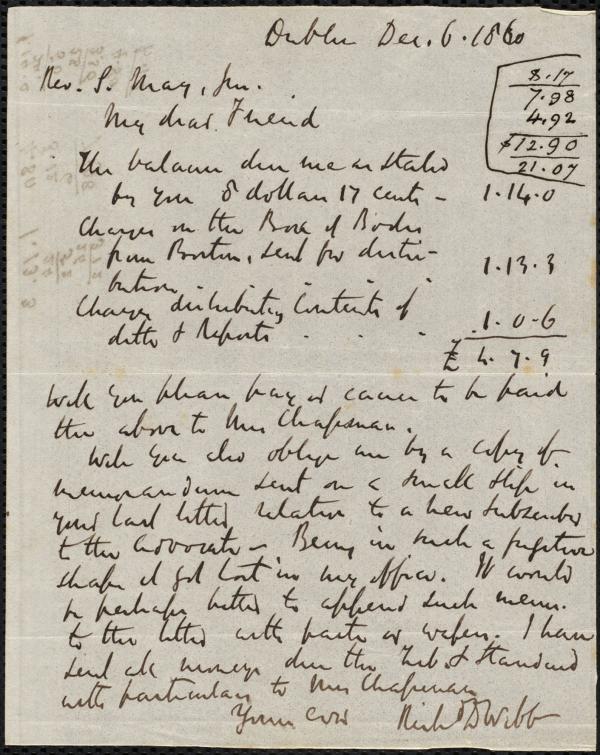 Dublin Dec. 6. 1860
Rev. S. May, Jun.
My dear Friend
8.17
7.98
4.92
$12.90
21.07
The balance due me as stated
by you 8 dollars 17 cents - 1.14.0
Charges on the Box of Books
from Boston, sent for distri-
bution . . . . 1.13.3
Charges distributing Contents of
ditto & Reports . . . 1.0.6
£ 4.7.9
Will you please pay or cause to be paid
the above to Mrs Chapman.
Will you also oblige me by a copy of
memorandum sent on a small slip in
your last letter relative to a new subscriber
to the Advocate -. Being in such a fugitive
shape it got lost in my office. It would
be perhaps better to append such mems.
to the letter with paste or wafers. I have
sent all moneys due the Lib. & Standard
with particulars to Mrs Chapman
Yours Richd D Webb